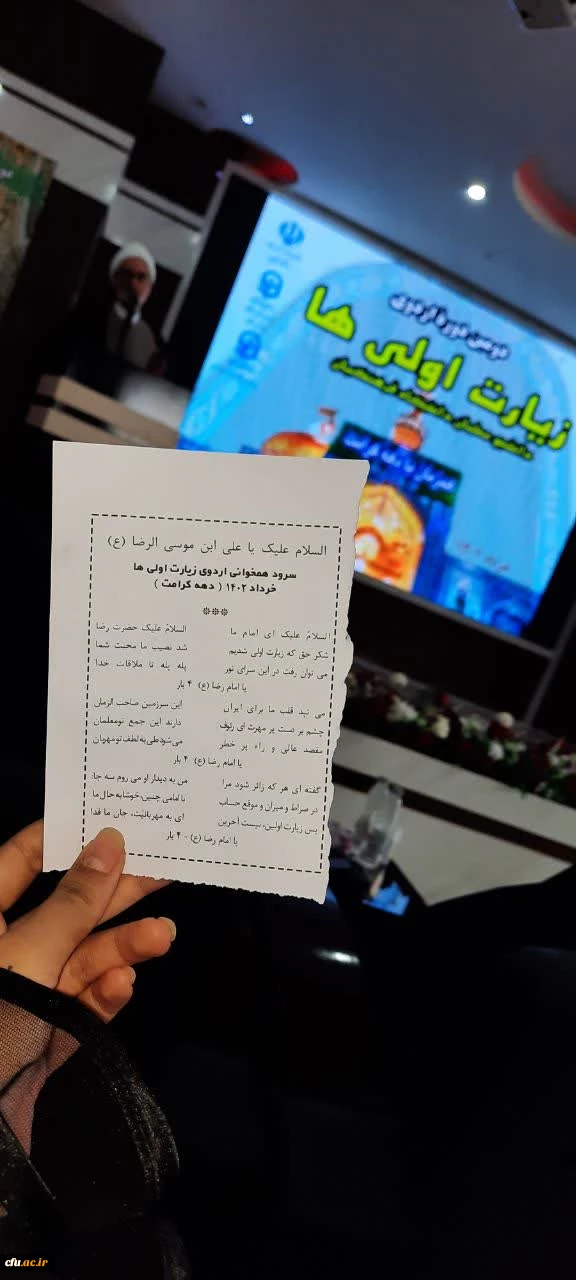 دومین دوره اردوی
زیارت اولی ها
السلام علیک یا علی ابن موسی الرضا (ع)
سرود همخوانی اردوی زیارت اولی ها
خرداد ۱۴۰۲ ( دهه کرامت )
***
السلامُ علیک ای امام ما السلامُ علیک حضرت رضا
شکر حق که زیارت اولی شدیم شد نصیب ما محبت شما
می توان رفت در این سرای نور پله پله تا ملاقات خدا
یا امام رضا (ع) ۴ بار
می تپد قلب ما برای ایران این سرزمین صاحب الزمان
چشم بر دست پر مهرت ای رئوف دارند این جمع نومعلمان
مقصد عالی و راه پر خطر می‌شود طی به لطف تو مهربان
یا امام رضا (ع) ۴ بار
گفته ای هر که زائر شود مرا من به دیدار او می روم سه جا:
در صراط و میزان و موقع حساب با امامی چنین، خوشا به حال ما
پس زیارت اولین، نیست آخرین ای به مهربانیت، جان ما فدا
یا امام رضا (ع) - ۴ بار
cfu.ac.ir